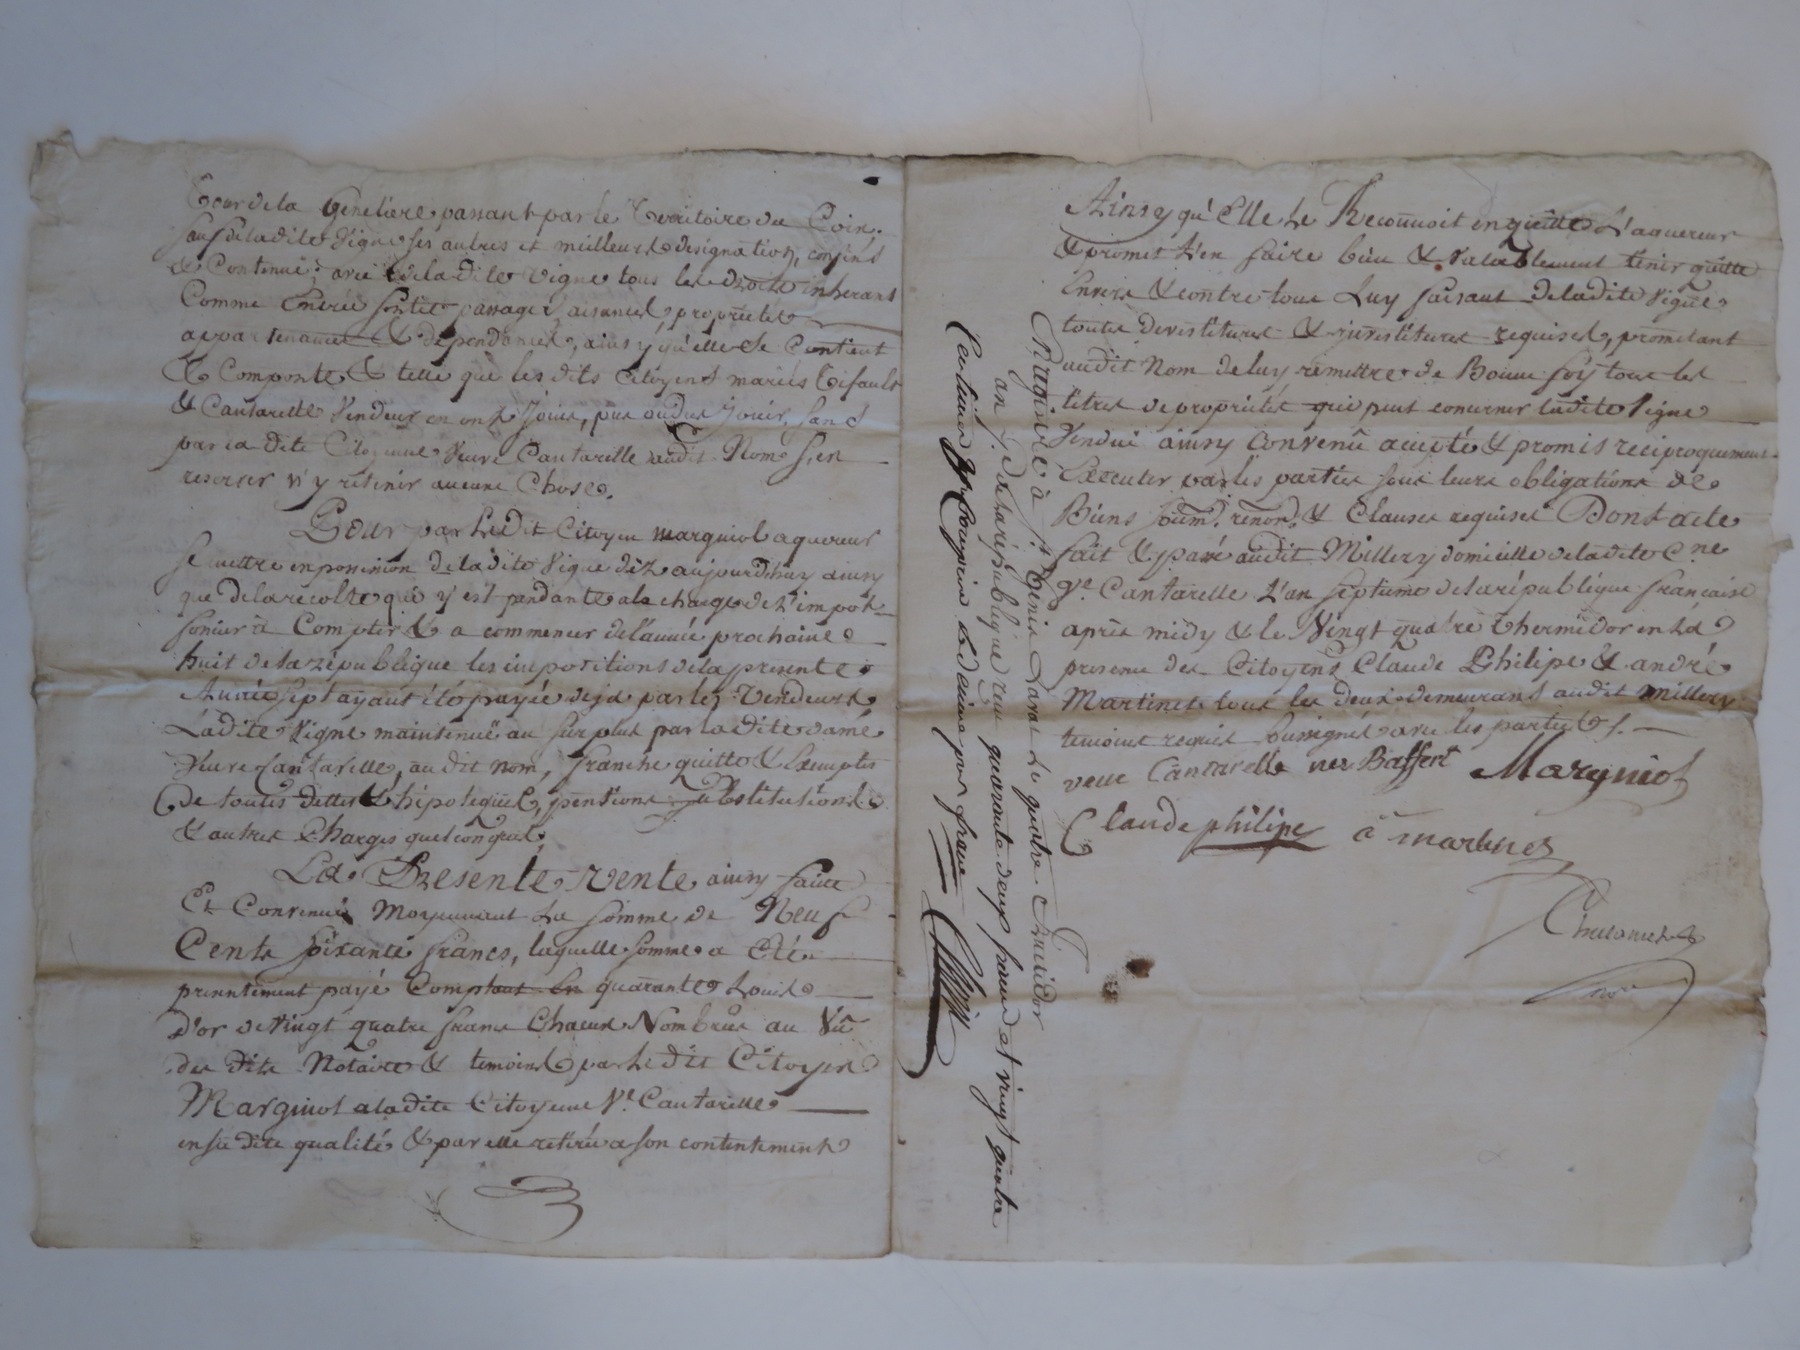 Cour de la Genetiere passant par le Territoire du Coin,
sauf de ladite Vigne ses autres et meilleurs designation, confins
& Contenuë; avec de la dite vigne tous les droits inherans
Comme Entrée sortie passages, aisances, proprietés
appartenances & dépendances, ainsy qu'elle Se Contient
& Comporte, & telle que les dits Citoyens mariés Tifault
& Cantarelle Vendeurs en ont Joüis, pus ou dus Joüir, sans
par la dite Citoyenne Veuve Cantarelle audit Nom S'en
reserver n'y retenir aucune Chose.
Pour par Ledit Citoyen Marguiot aquereur
Se mettre en possession de la dite Vigne dèz aujourdhuy ainsy
que de la récolte qui y est pendante a la charge de L'impot
foncier à Compter & a commencer de l'année prochaine
huit de la république les impositions de la presente
Année sept ayant été payée deja par les Vendeurs
Ladite Vigne maintenuë au surplus par la dite dame
Veuve Cantarelle, au dit nom, franche quitte & Exempte
de toutes dettes & hipoteques, pensions Substitutions
& autres Charges quelconques.
La Presente Vente ainsy faite
Et Convenuë Moyennant La Somme de Neuf
Cents soixante francs, laquelle somme a Eté
presentement payé Comptant En quarante Louis
D'or de Vingt quatre francs Chacun Nombrés au Vû
des dits Notaire & temoins par Le dit Citoyen
Marguiot a la dite Citoyenne Ve. Cantarelle
en sa dite qualité & par elle retirée a son contentement
Ainsy qu'Elle Le Reconnoit en quitte L'aquereur
& promet L'en faire bien & Valablement tenir quitte
Envers & contre tous Luy faisant de la dite Vigne
toutes devestitures & investitures requises, promettant
audit Nom de luy remettre de Bonne foy tous les
titres de proprietés qui peut concerner ladite Vigne
Venduë ainsy Convenû accepté & promis reciproquement
Executer par les parties sous leurs obligations de
Biens soum.ⁿ renon.ⁿ & Clauses requises Dont acte
fait & passé audit Millery domicille de la dite C.ne
Ve. Cantarelle L'an septieme de la république française
après midy & le Vingt quatre Thermidor en La
presence des Citoyens Claude Philipe & andré
Martinet tous les deux demeurans audit Millery
temoins requis soussignés avec les parties /.
veuve Cantarelle nee Baffert Marguiot
Claude philipe a martinet
nore
Enregistré à St. Genis Laval Le quatre fructidor
an 7. de la république reçu quarante deux francs et vingt quatre
Centimes y Compris le decime par franc